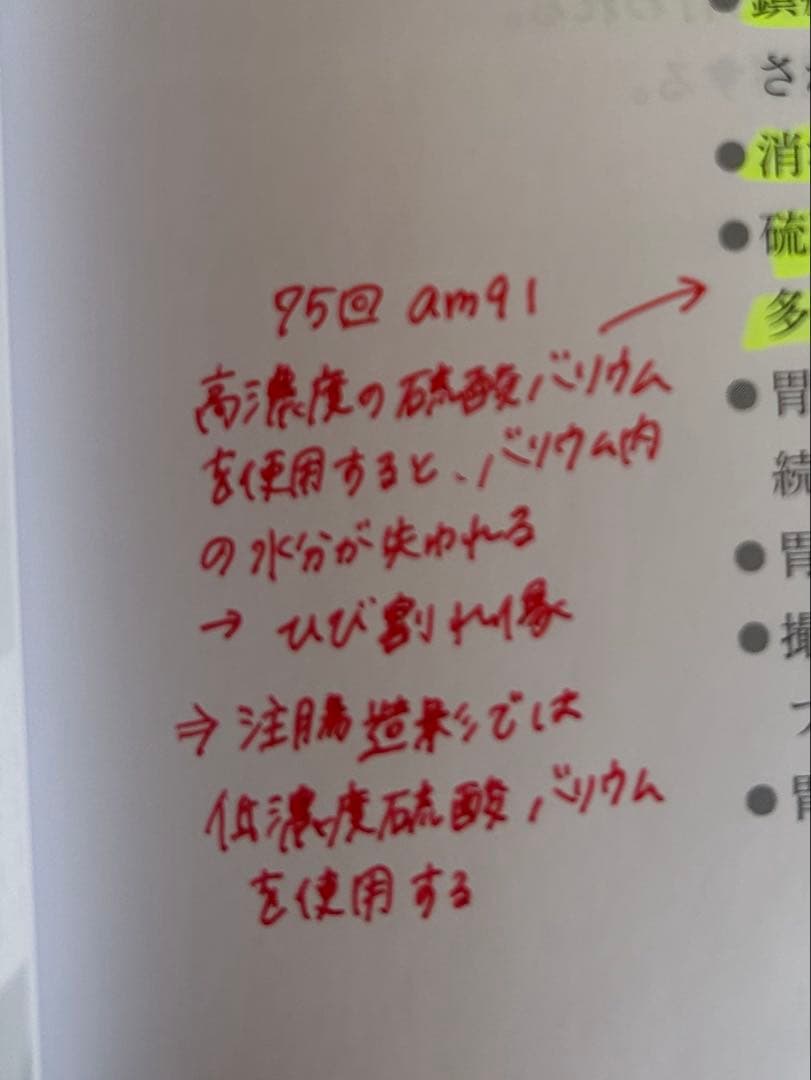 75回 am91
高濃度の硫酸バリウム
を使用すると、バリウム内
の水分が失われる
→ ひび割れ像
⇒ 注腸造影では
低濃度硫酸バリウム
を使用する
さ
● 消
● 硫
多
● 胃
続
● 胃
● 撮
● 胃